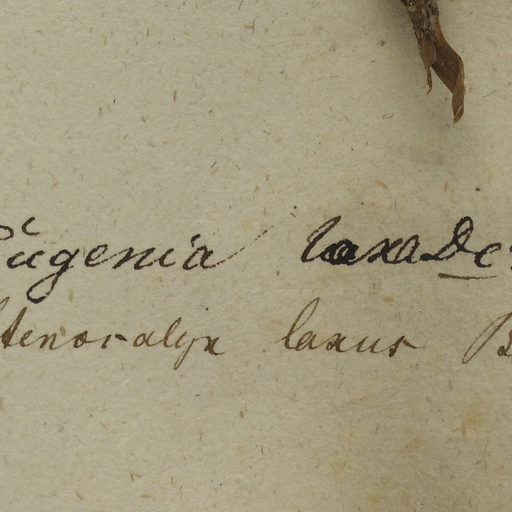 Eugenia laxa Dc.
Stenocalyx laxus B